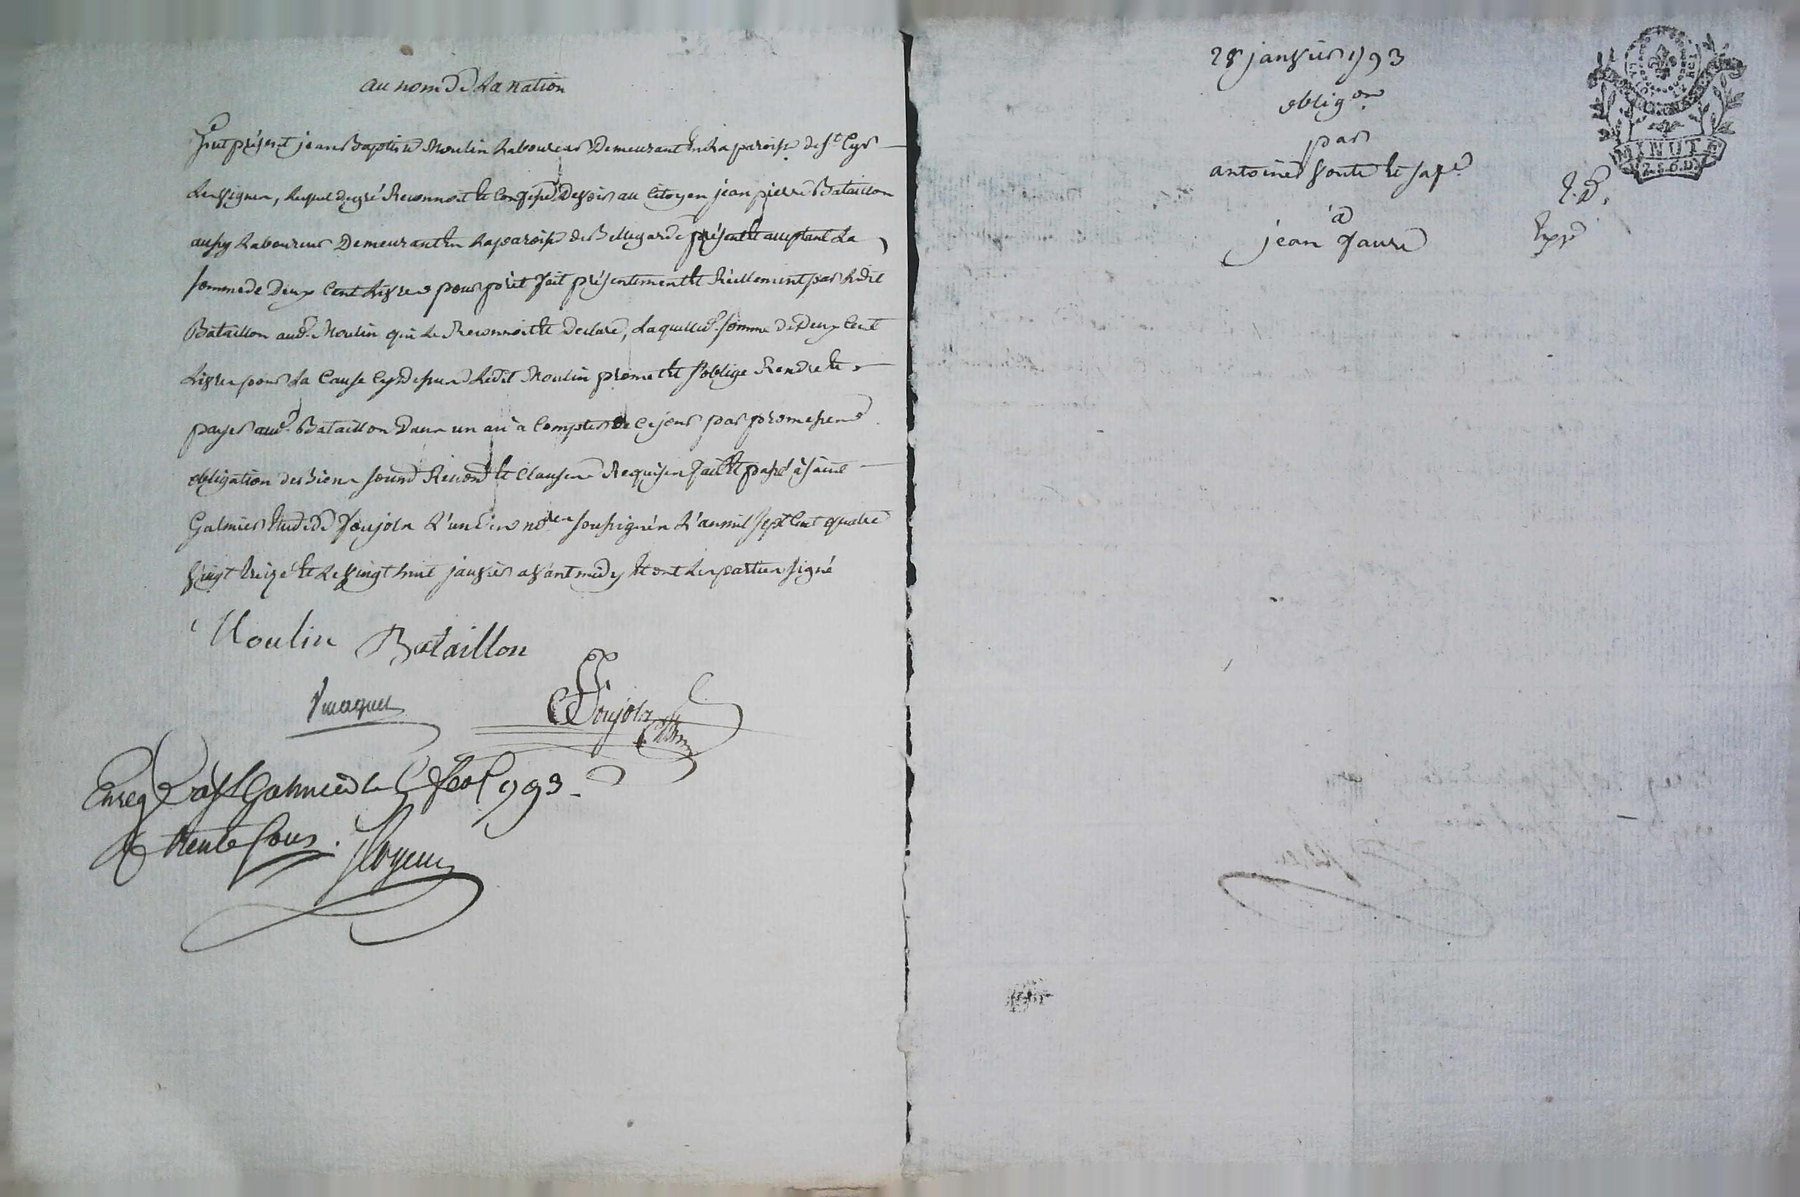 au nom de La Nation
Fut présent jean Baptiste Moulin Laboureur Demeurant en La paroisse de St Cyr
Les Vignes, Lequel de gré Reconnoit et Confesse Devoir au Citoyen jean pierre Bataillon
aussy Laboureur Demeurant en La paroisse de Bellegarde présent et acceptant La
somme de Deux Cent Livres pour prêt fait présentement et Réellement par Ledit
Bataillon aud. Moulin qui Le Reconnoit et Declare, Laquelle somme de Deux Cent
Livres pour La Cause Cy Dessus Ledit Moulin promet et s'oblige Rendre et
payer aud. Bataillon Dans un an à Compter de Ce jour par promesses
obligation de Biens soum Renon et Clauses Requises fait et passé à Saint
Galmier Etude de Poujols L'un des nores soussignés L'an mil sept Cent quatre
vingt treize et Le vingt huit janvier avant midy et ont Les parties signé
Moulin Bataillon
Poujols
Enreg à St Galmier le fevr 1793
trente sous.
28 janvier 1793
obligon
par
antoine
à
jean faure
Expé
MINUTE